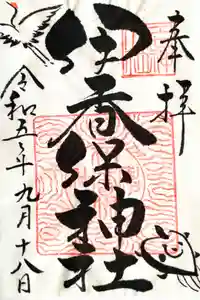 奉拝
伊香保神社
令和五年九月十八日